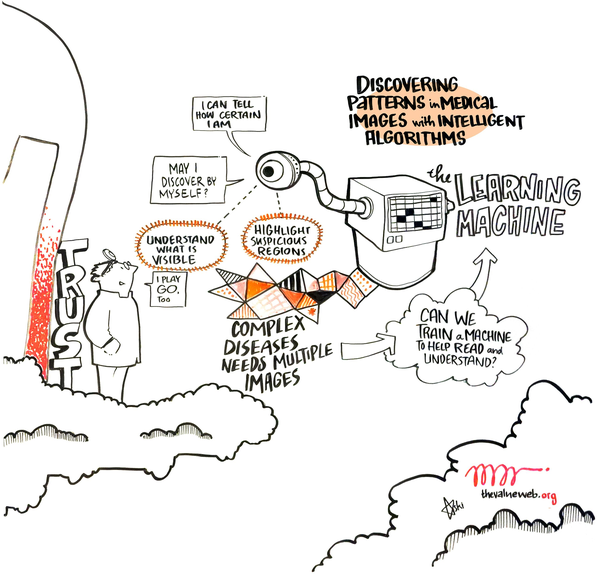 DISCOVERING
PATTERNS in MEDICAL
IMAGES with INTELLIGENT
ALGORITHMS
I CAN TELL
HOW CERTAIN
I AM
MAY I
DISCOVER BY
MYSELF?
the LEARNING
MACHINE
UNDERSTAND
WHAT IS
VISIBLE
HIGHLIGHT
SUSPICIOUS
REGIONS
TRUST
I PLAY
GO.
Too
COMPLEX
DISEASES
NEEDS MULTIPLE
IMAGES
CAN WE
TRAIN a MACHINE
TO HELP READ and
UNDERSTAND?
thevalueweb.org